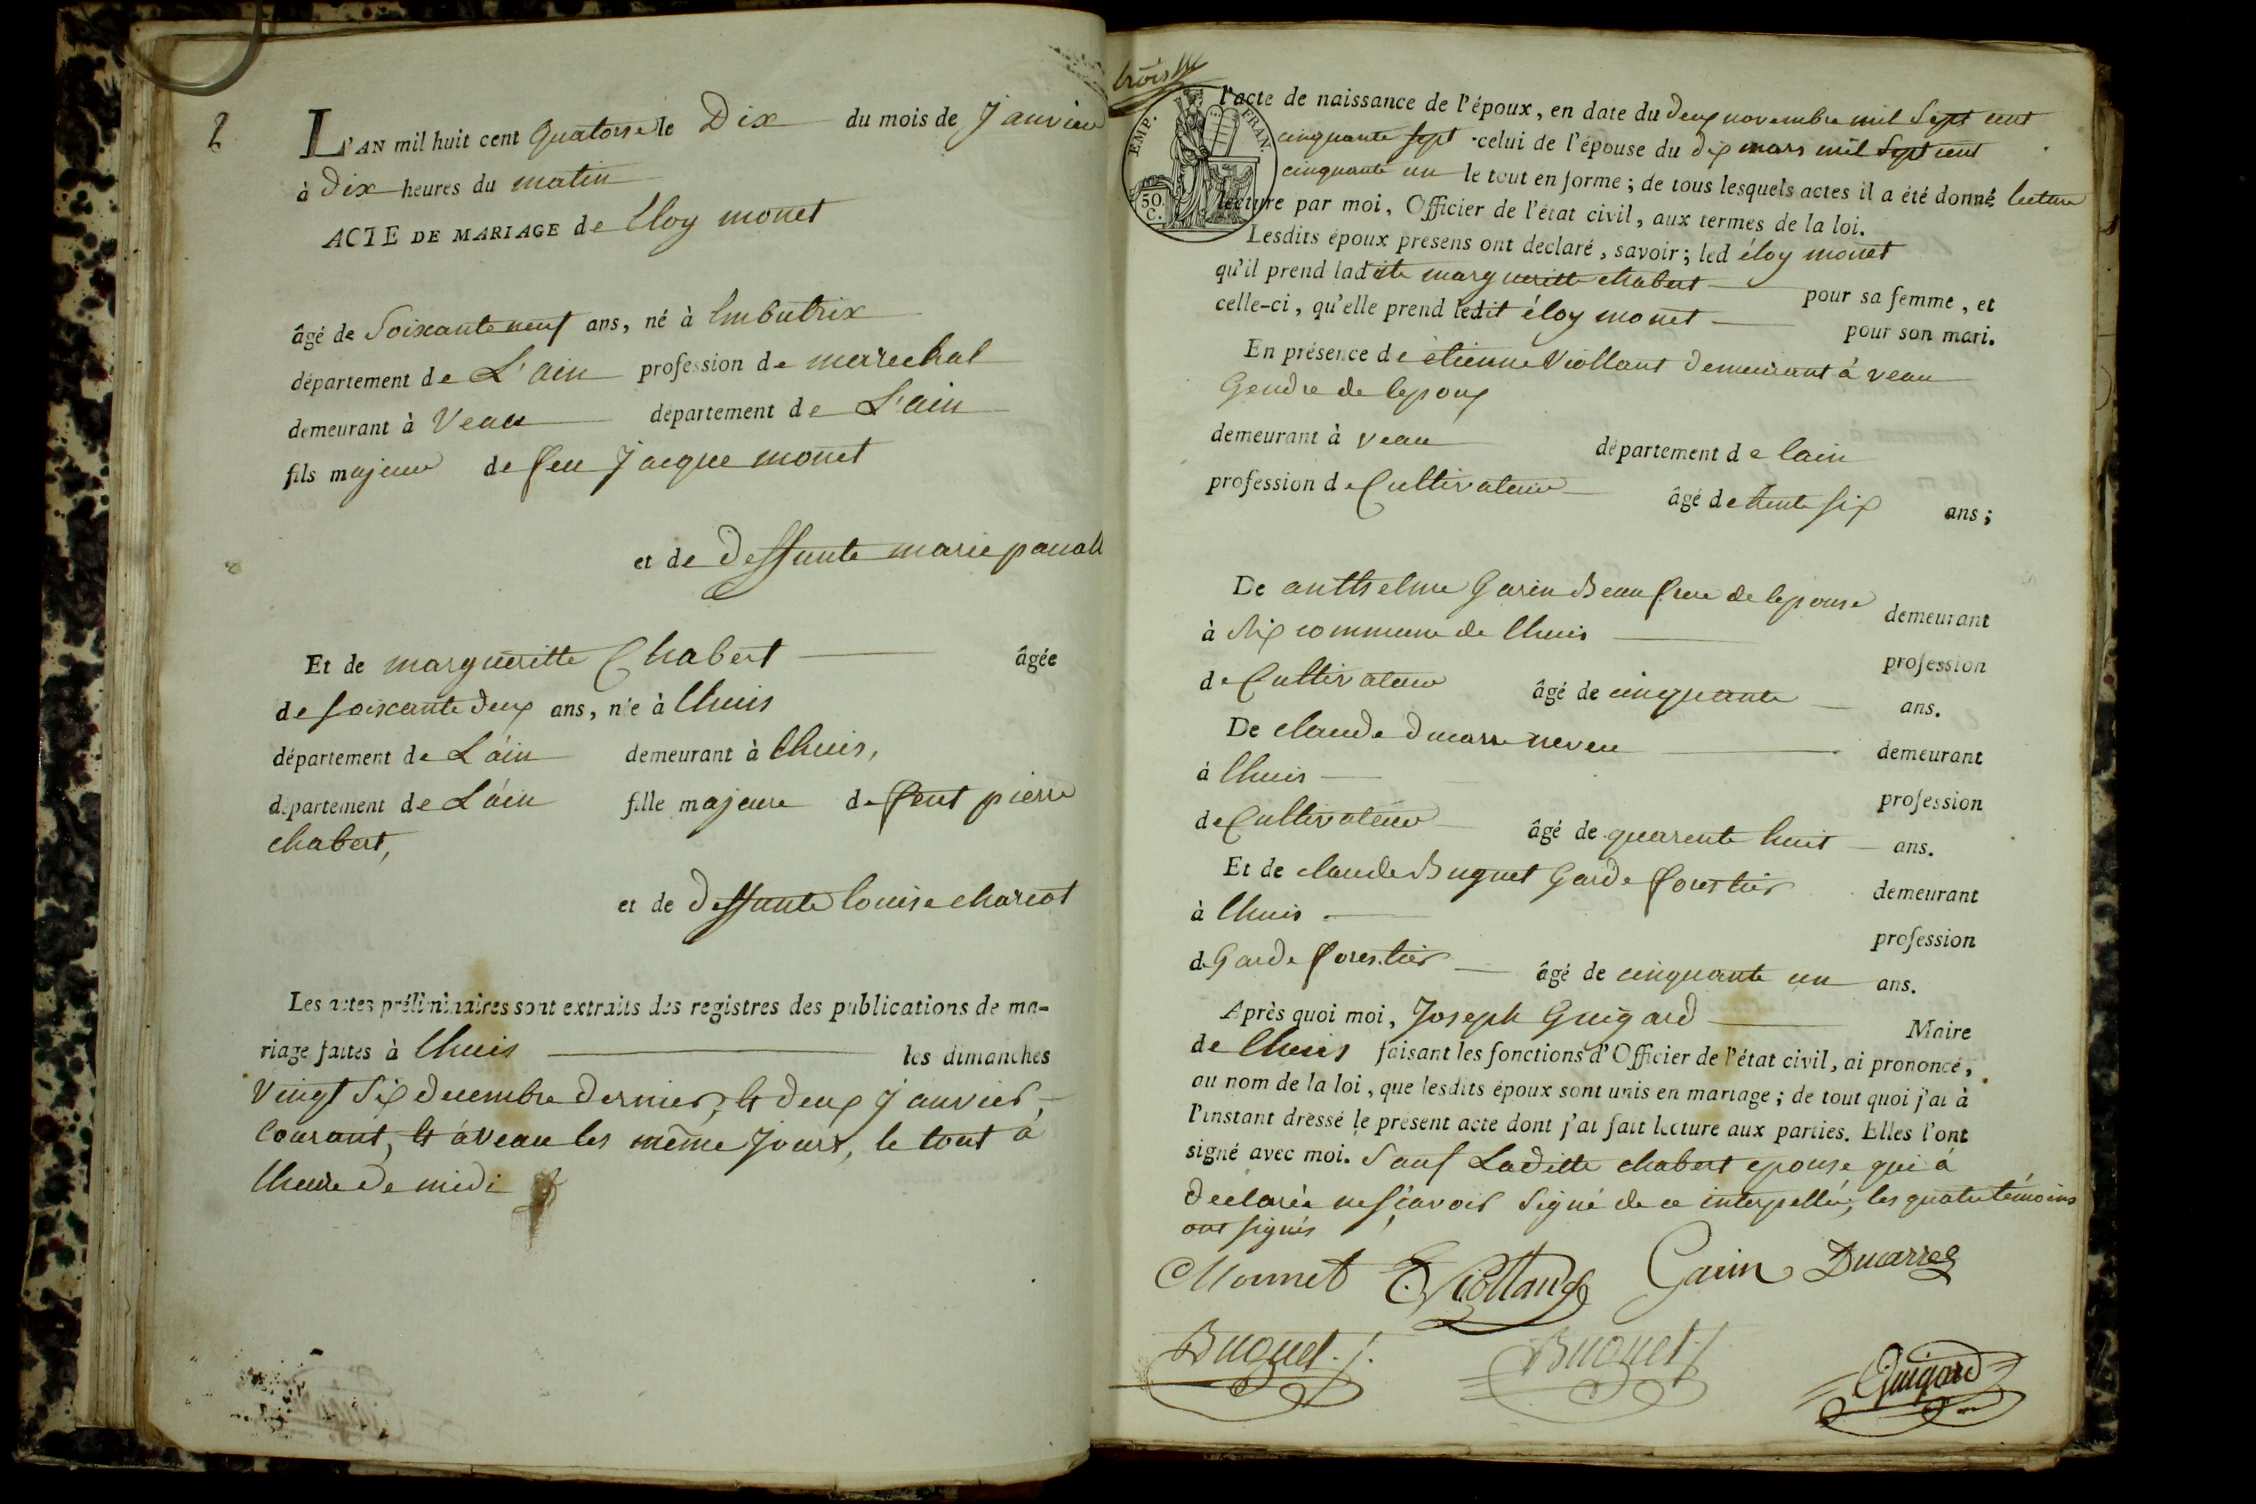 2
L'AN mil huit cent quatorse le Dix du mois de Janvier
à Dix heures du matin
ACTE DE MARIAGE de Eloy monet
âgé de Soixante neuf ans, né à Embutrix
département de L'ain profession de marechal
demeurant à Veau département de L'ain
fils majeur de feu Jacque monet
et de deffunte marie
Et de margueritte Chabert âgée
de soixante deux ans, née à lhuis
département de L'ain demeurant à lhuis,
département de L'ain fille majeure de feut pierre
chabert,
et de deffunte louise chariot
Les actes préliminaires sont extraits des registres des publications de ma-
riage faites à lhuis les dimanches
vingt six decembre dernier, et deux janvier,
courant, et à veau les même jours, le tout a
lheure de midi
trois
EMP. FRAN.
50.
C.
l'acte de naissance de l'époux, en date du deux novembre mil sept cent
cinquante sept celui de l'épouse du dix mars mil sept cent
cinquante un le tout en forme; de tous lesquels actes il a été donné lecture
lecture par moi, Officier de l'état civil, aux termes de la loi.
Lesdits époux présens ont déclaré, savoir; led éloy monet
qu'il prend ladite margueritte chabert pour sa femme, et
celle-ci, qu'elle prend ledit éloy monet pour son mari.
En présence de étienne Viollant demeurant à veau
Gendre de lepoux
demeurant à veau département de lain
profession de Cultivateur âgé de trente six ans;
De anthelme Garin Beau frere de lepouse demeurant
à Rix commune de lhuis profession
de Cultivateur âgé de cinquante ans.
De claude ducarre neveu demeurant
à lhuis profession
de Cultivateur âgé de quarente huit ans.
Et de claude Buguet Garde forestier demeurant
à lhuis profession
de Garde forestier âgé de cinquante un ans.
Après quoi moi, Joseph Guigard Maire
de lhuis faisant les fonctions d'Officier de l'état civil, ai prononcé,
au nom de la loi, que lesdits époux sont unis en mariage; de tout quoi j'ai à
l'instant dressé le présent acte dont j'ai fait lecture aux parties. Elles l'ont
signé avec moi. Sauf Laditte chabert epouse qui à
declarée ne sçavoir signé de ce interpellée, les quatre témoins
ont signés
Monnet E Violland Garin Ducarre
Buguet. j. Buguet j Guigard